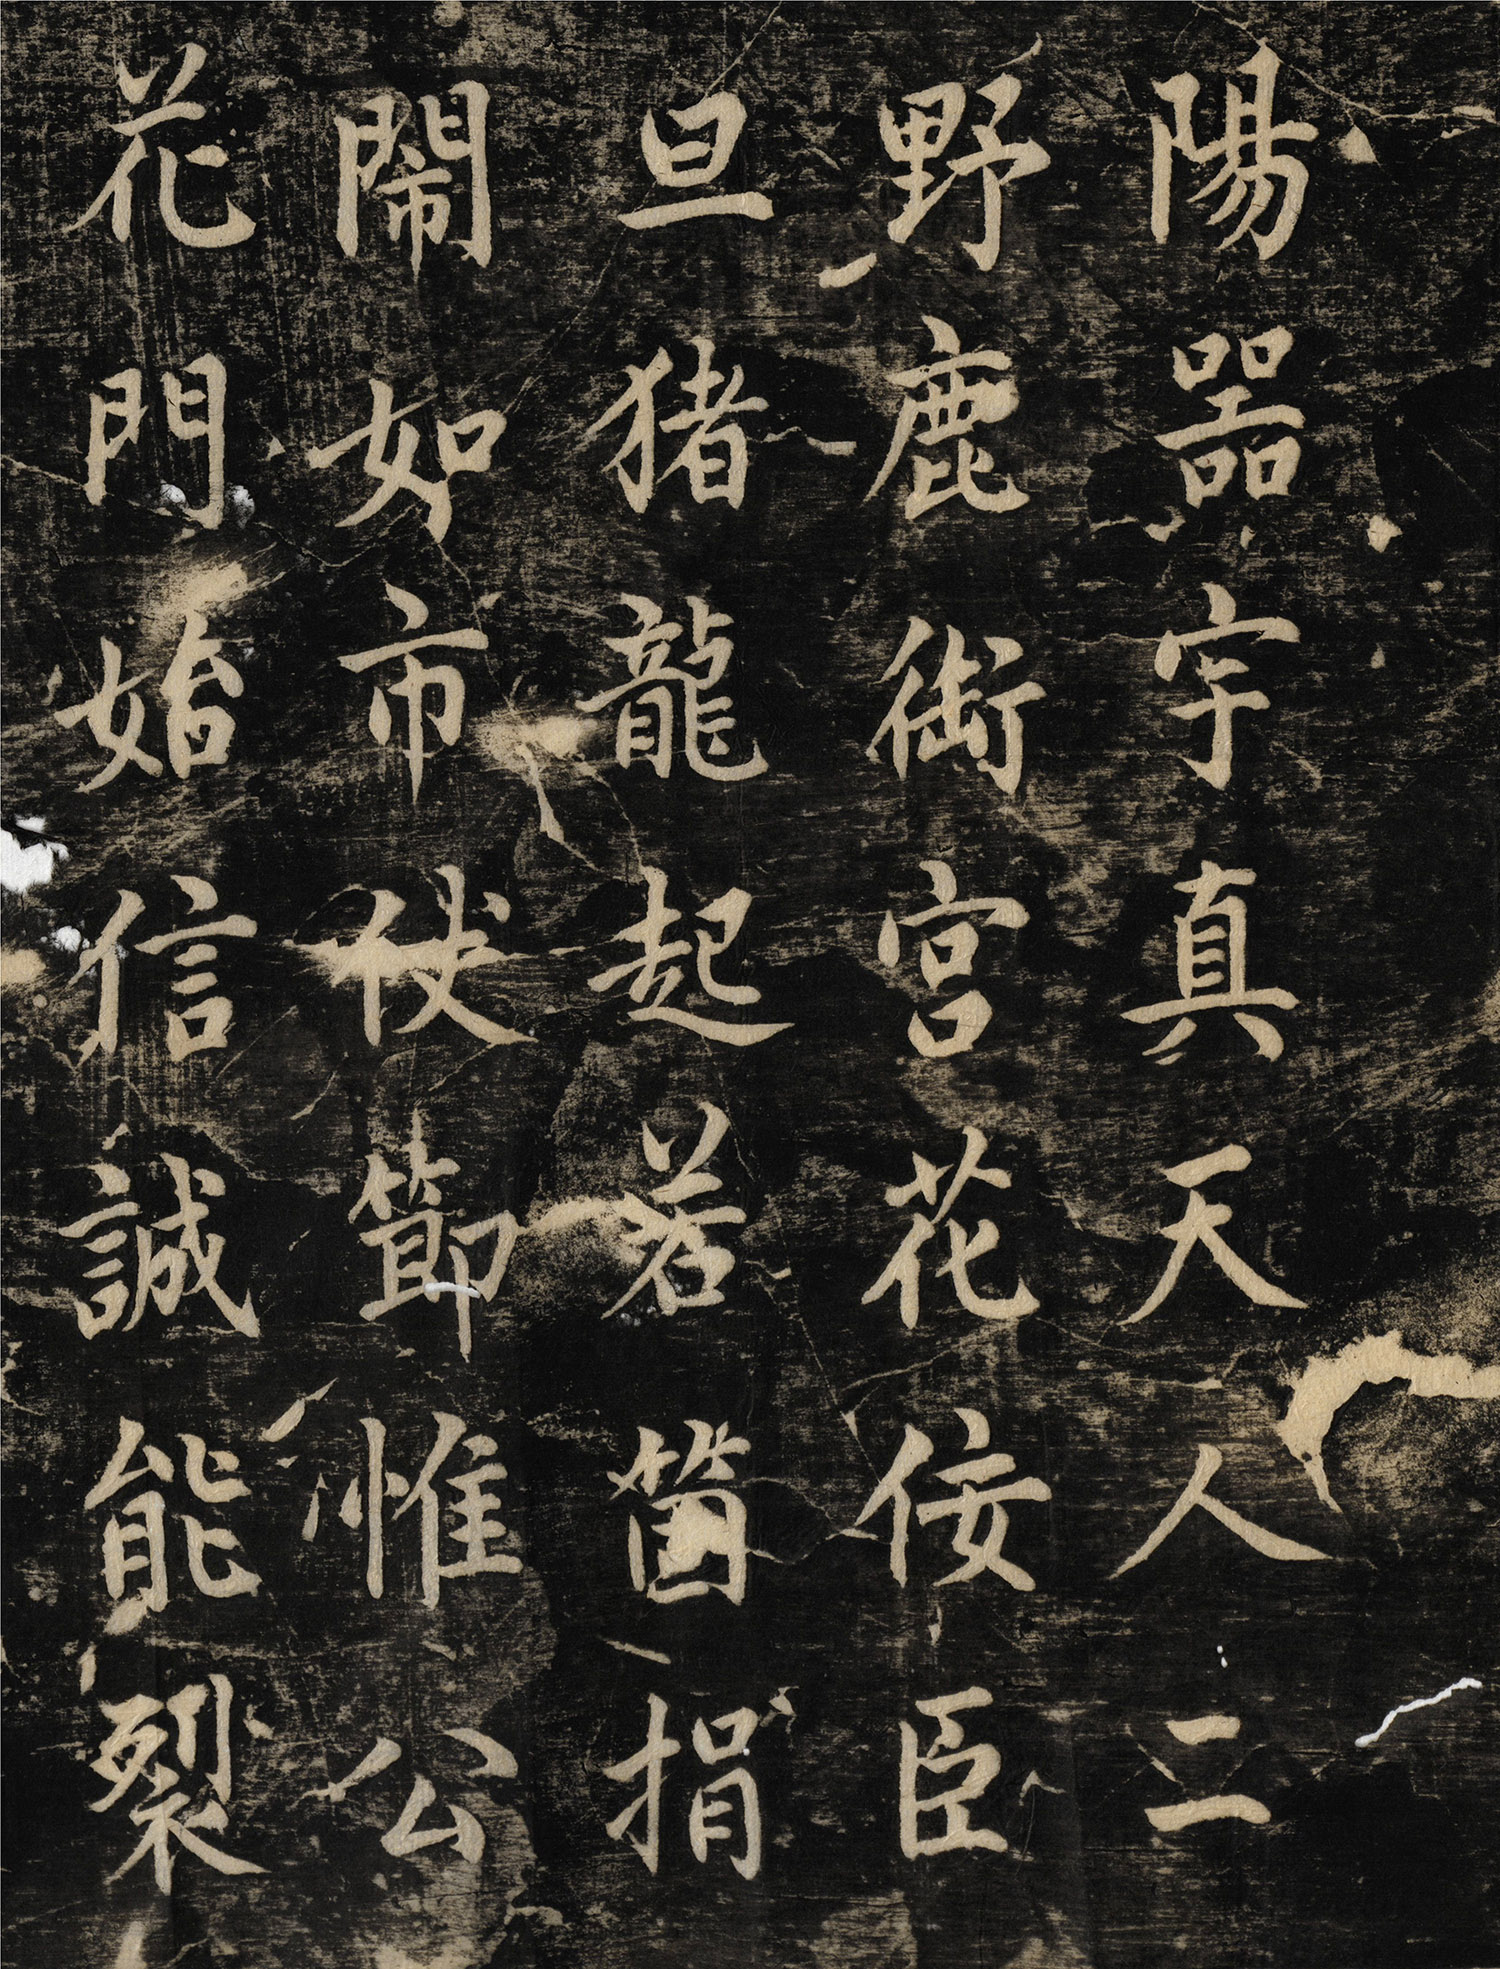 陽噐宇真天人二
野鹿衘宮花佞臣
旦猪龍起若箇捐
閙如市仗節惟公
花門始信誠能裂